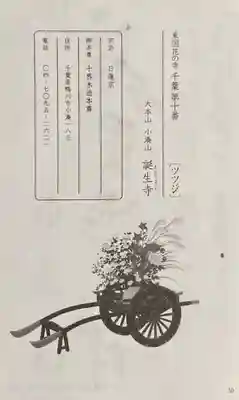 東国花の寺 千葉第十番
[ツツジ]
大本山 小湊山 誕生寺
宗派 日蓮宗
御本尊 十界本造本尊
住所 千葉県鴨川市小湊一八三
電話 〇四-七〇九五-二六二一
50